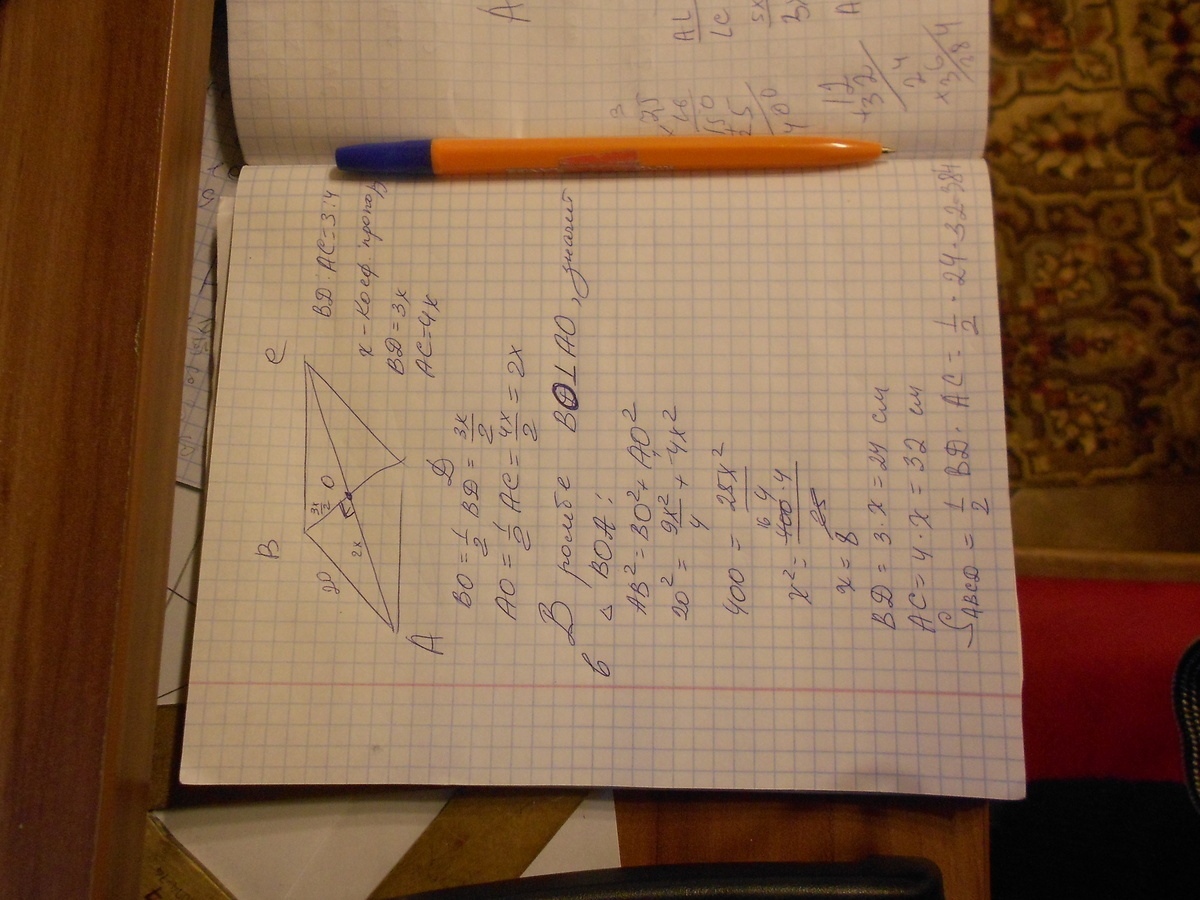 B
C
20
3x/2
O
2x
A
Д
BД : AC = 3:4
x - коэф. пропор
BД = 3x
AC = 4x
BO = 1/2 BД = 3x/2
AO = 1/2 AC = 4x/2 = 2x
В ромбе BO ⊥ AO, значит
в △ BOA:
AB² = BO² + AO²
20² = 9x²/4 + 4x²
400 = 25x²/4
x² = 400·4/25
16
x = 8
BД = 3·x = 24 см
AC = 4·x = 32 см
S ABCD = 1/2 BД · AC = 1/2 · 24 · 32 = 384
A
AL
LC
5x
3
×25
16
150
+25
400
12
+32
24
×36
A